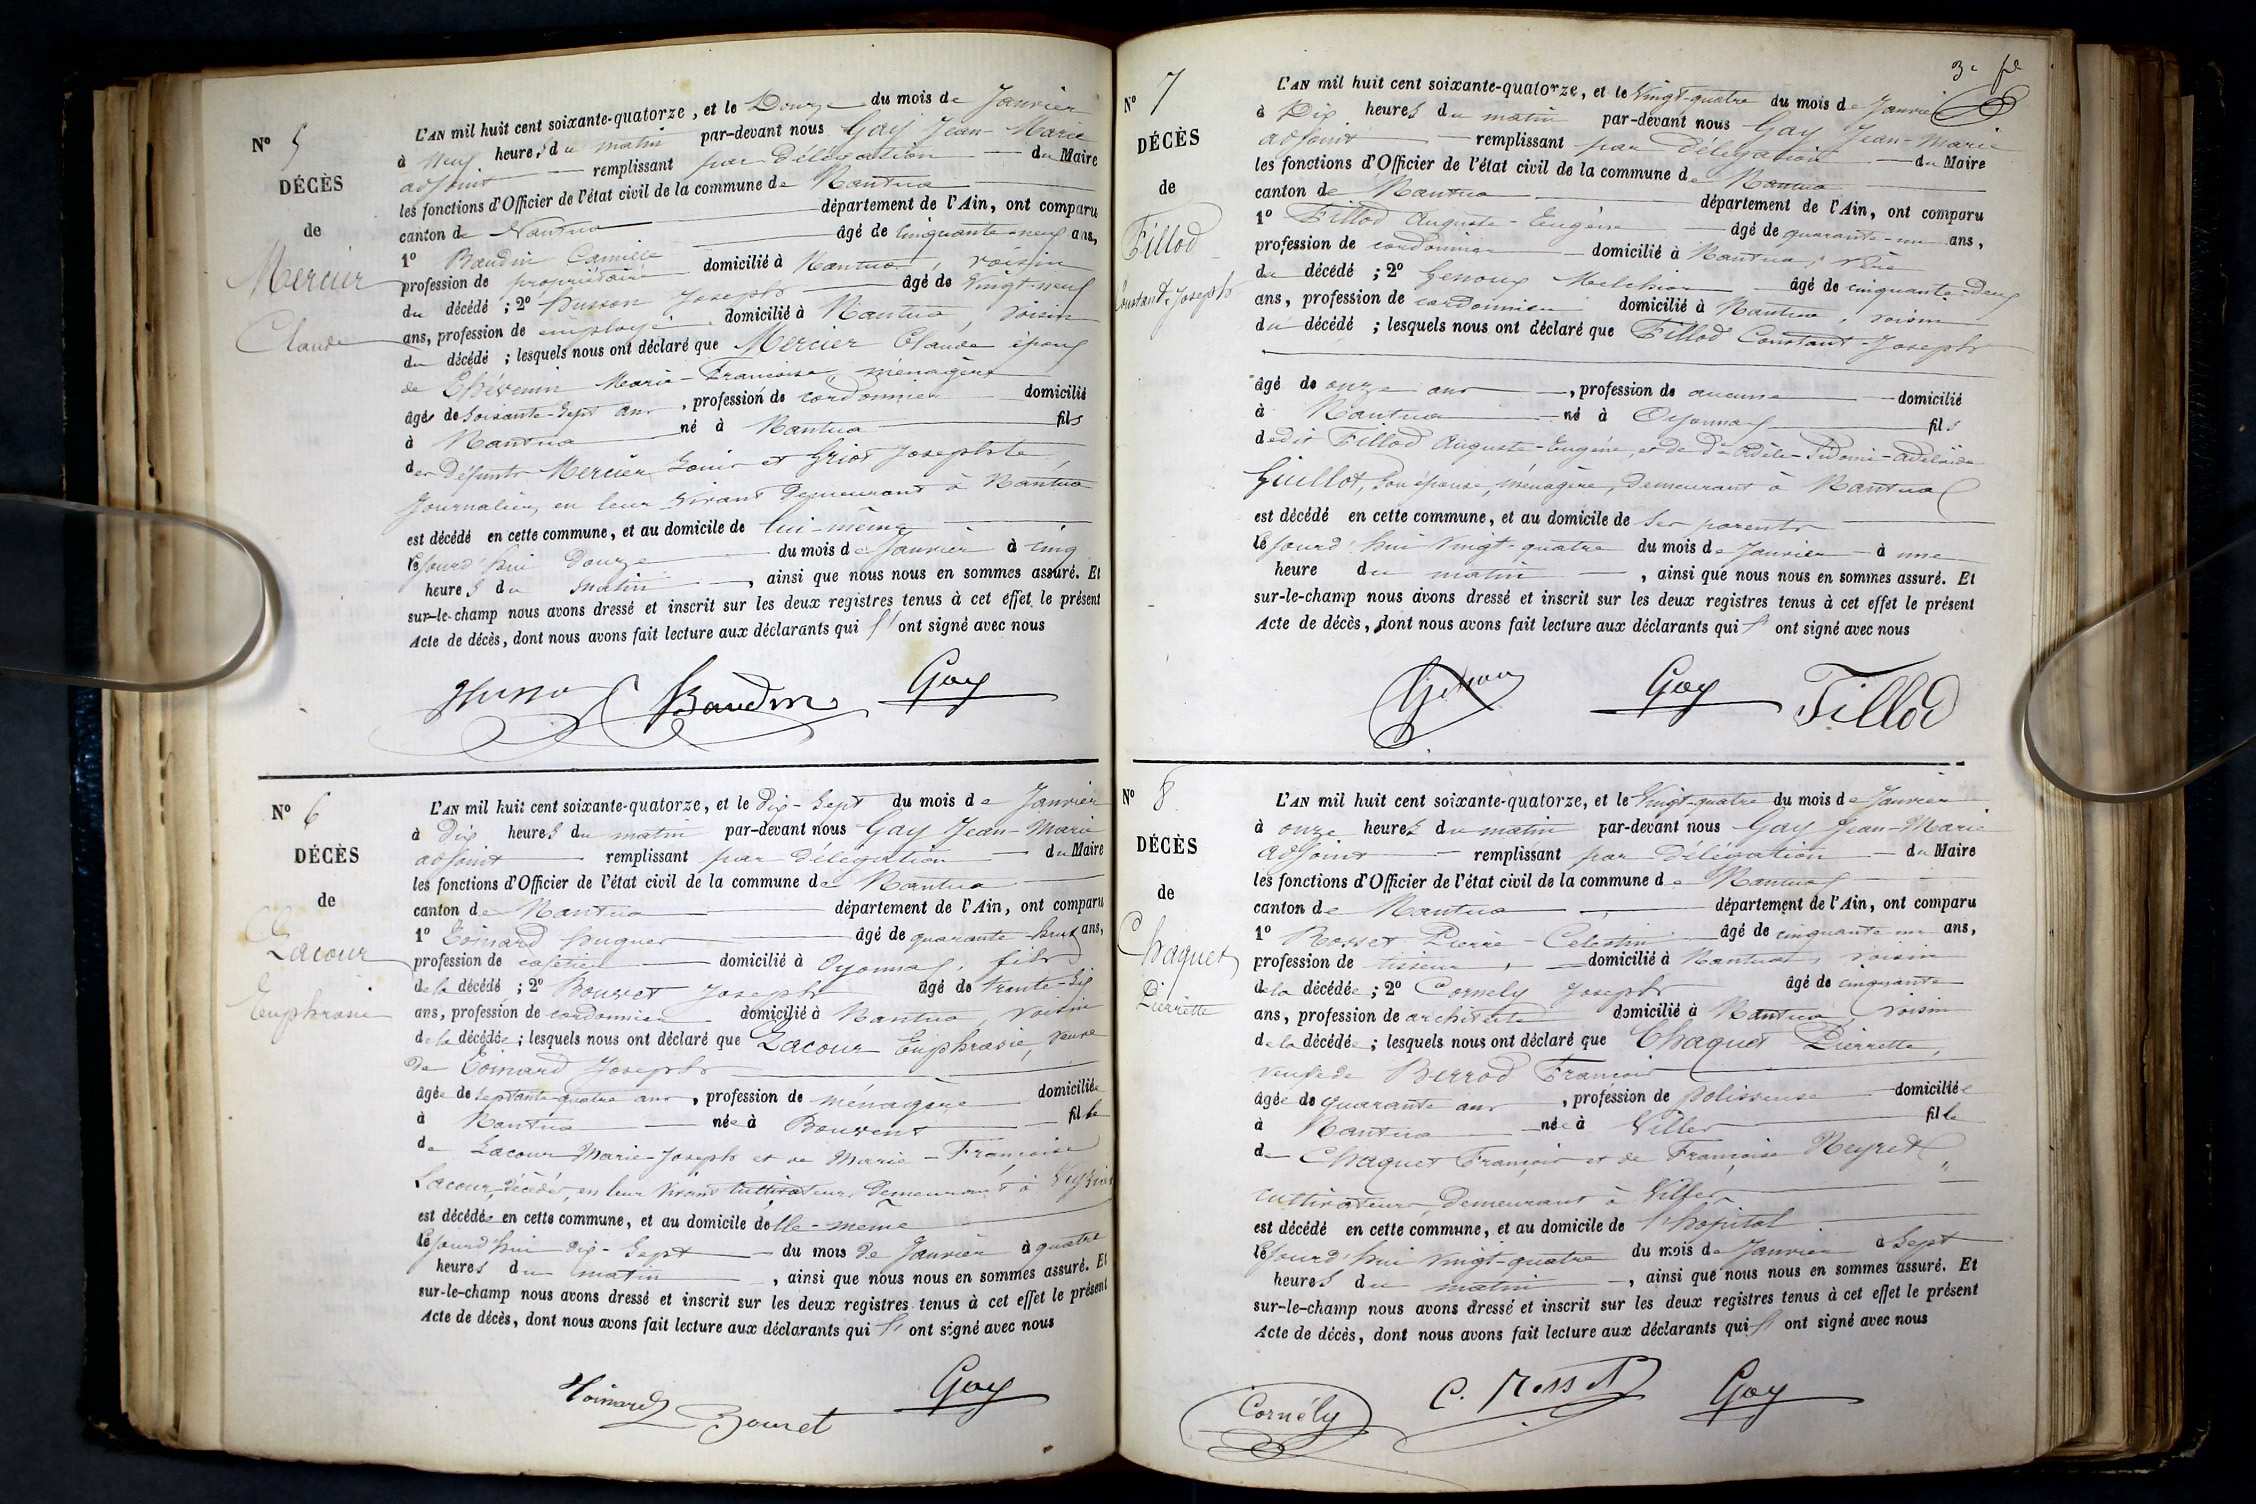 N° 5
DÉCÈS
de
Mercier
Claude
L'AN mil huit cent soixante-quatorze, et le Douze du mois de Janvier
à neuf heures du matin par-devant nous Gay Jean-Marie
adjoint remplissant par délégation du Maire
les fonctions d'Officier de l'état civil de la commune de Nantua
canton de Nantua département de l'Ain, ont comparu
1° Baudin Camille âgé de cinquante-neuf ans,
profession de propriétaire domicilié à Nantua, voisin
du décédé ; 2° husson Joseph âgé de vingt-neuf
ans, profession de employé domicilié à Nantua, voisin
du décédé ; lesquels nous ont déclaré que Mercier Claude époux
de Thévenin Marie-Françoise, ménagère
âgé de soixante-sept ans, profession de cordonnier domicilié
à Nantua né à Nantua fils
des défunts Mercier Louis et Griot Josephte,
journaliers, en leur vivant demeurant à Nantua
est décédé en cette commune, et au domicile de lui-même
lejourd'hui Douze du mois de Janvier à cinq
heures du matin, ainsi que nous nous en sommes assuré. Et
sur-le-champ nous avons dressé et inscrit sur les deux registres tenus à cet effet le présent
Acte de décès, dont nous avons fait lecture aux déclarants qui l' ont signé avec nous
Husson Baudin Gay
N° 6
DÉCÈS
de
Lacour
Euphrasie
L'AN mil huit cent soixante-quatorze, et le Dix-Sept du mois de Janvier
à Dix heures du matin par-devant nous Gay Jean-Marie
adjoint remplissant par délégation du Maire
les fonctions d'Officier de l'état civil de la commune de Nantua
canton de Nantua département de l'Ain, ont comparu
1° Toinard hugues âgé de quarante-huit ans,
profession de cafetier domicilié à Oyonnax, fils
de la décédé ; 2° Bouvet Joseph âgé de trente-six
ans, profession de cordonnier domicilié à Nantua, voisin
de la décédée ; lesquels nous ont déclaré que Lacour Euphrasie, veuve
de Toinard Joseph
âgée de septante-quatre ans, profession de ménagère domiciliée
à Nantua née à Bouvent fille
de Lacour Marie-Joseph et de Marie-Françoise
Lacour, décédés, en leur vivant cultivateurs demeurant à
est décédée en cette commune, et au domicile d'elle-même
lejourd'hui dix-sept du mois de Janvier à quatre
heures du matin, ainsi que nous nous en sommes assuré. Et
sur-le-champ nous avons dressé et inscrit sur les deux registres tenus à cet effet le présent
Acte de décès, dont nous avons fait lecture aux déclarants qui l' ont signé avec nous
Toinard Bouvet Gay
3e
N° 7
DÉCÈS
de
Fillod
Constant-Joseph
L'AN mil huit cent soixante-quatorze, et le Vingt-quatre du mois de Janvier
à Dix heures du matin par-devant nous Gay Jean-Marie
adjoint remplissant par délégation du Maire
les fonctions d'Officier de l'état civil de la commune de Nantua
canton de Nantua département de l'Ain, ont comparu
1° Fillod Auguste-Eugène âgé de quarante-un ans,
profession de cordonnier domicilié à Nantua, père
du décédé ; 2° Genoux Melchior âgé de cinquante-deux
ans, profession de cordonnier domicilié à Nantua, voisin
du décédé ; lesquels nous ont déclaré que Fillod Constant-Joseph
âgé de onze ans, profession de aucune domicilié
à Nantua né à Oyonnax fils
dedit Fillod Auguste-Eugène, et de De Adèle-Sidonie-Adelaïde
Guillot, son épouse, ménagère, demeurant à Nantua
est décédé en cette commune, et au domicile de ses parents
lejourd'hui vingt-quatre du mois de Janvier à une
heure du matin, ainsi que nous nous en sommes assuré. Et
sur-le-champ nous avons dressé et inscrit sur les deux registres tenus à cet effet le présent
Acte de décès, dont nous avons fait lecture aux déclarants qui l' ont signé avec nous
Genoux Gay Fillod
N° 8
DÉCÈS
de
Chaquet
Pierrette
L'AN mil huit cent soixante-quatorze, et le Vingt-quatre du mois de Janvier
à onze heures du matin par-devant nous Gay Jean-Marie
adjoint remplissant par délégation du Maire
les fonctions d'Officier de l'état civil de la commune de Nantua
canton de Nantua département de l'Ain, ont comparu
1° Rosset Pierre-Celestin âgé de cinquante-un ans,
profession de tisseur, domicilié à Nantua, voisin
de la décédée ; 2° Cornely Joseph âgé de cinquante
ans, profession de architecte domicilié à Nantua, voisin
de la décédée ; lesquels nous ont déclaré que Chaquet Pierrette,
veuve de Berrod François
âgée de quarante ans, profession de polisseuse domiciliée
à Nantua née à Villes fille
de Chaquet François et de Françoise Neyret
cultivateurs, demeurant à Villes
est décédé en cette commune, et au domicile de l'hopital
lejourd'hui vingt-quatre du mois de Janvier à sept
heures du matin, ainsi que nous nous en sommes assuré. Et
sur-le-champ nous avons dressé et inscrit sur les deux registres tenus à cet effet le présent
Acte de décès, dont nous avons fait lecture aux déclarants qui l' ont signé avec nous
Cornély C. Rosset Gay